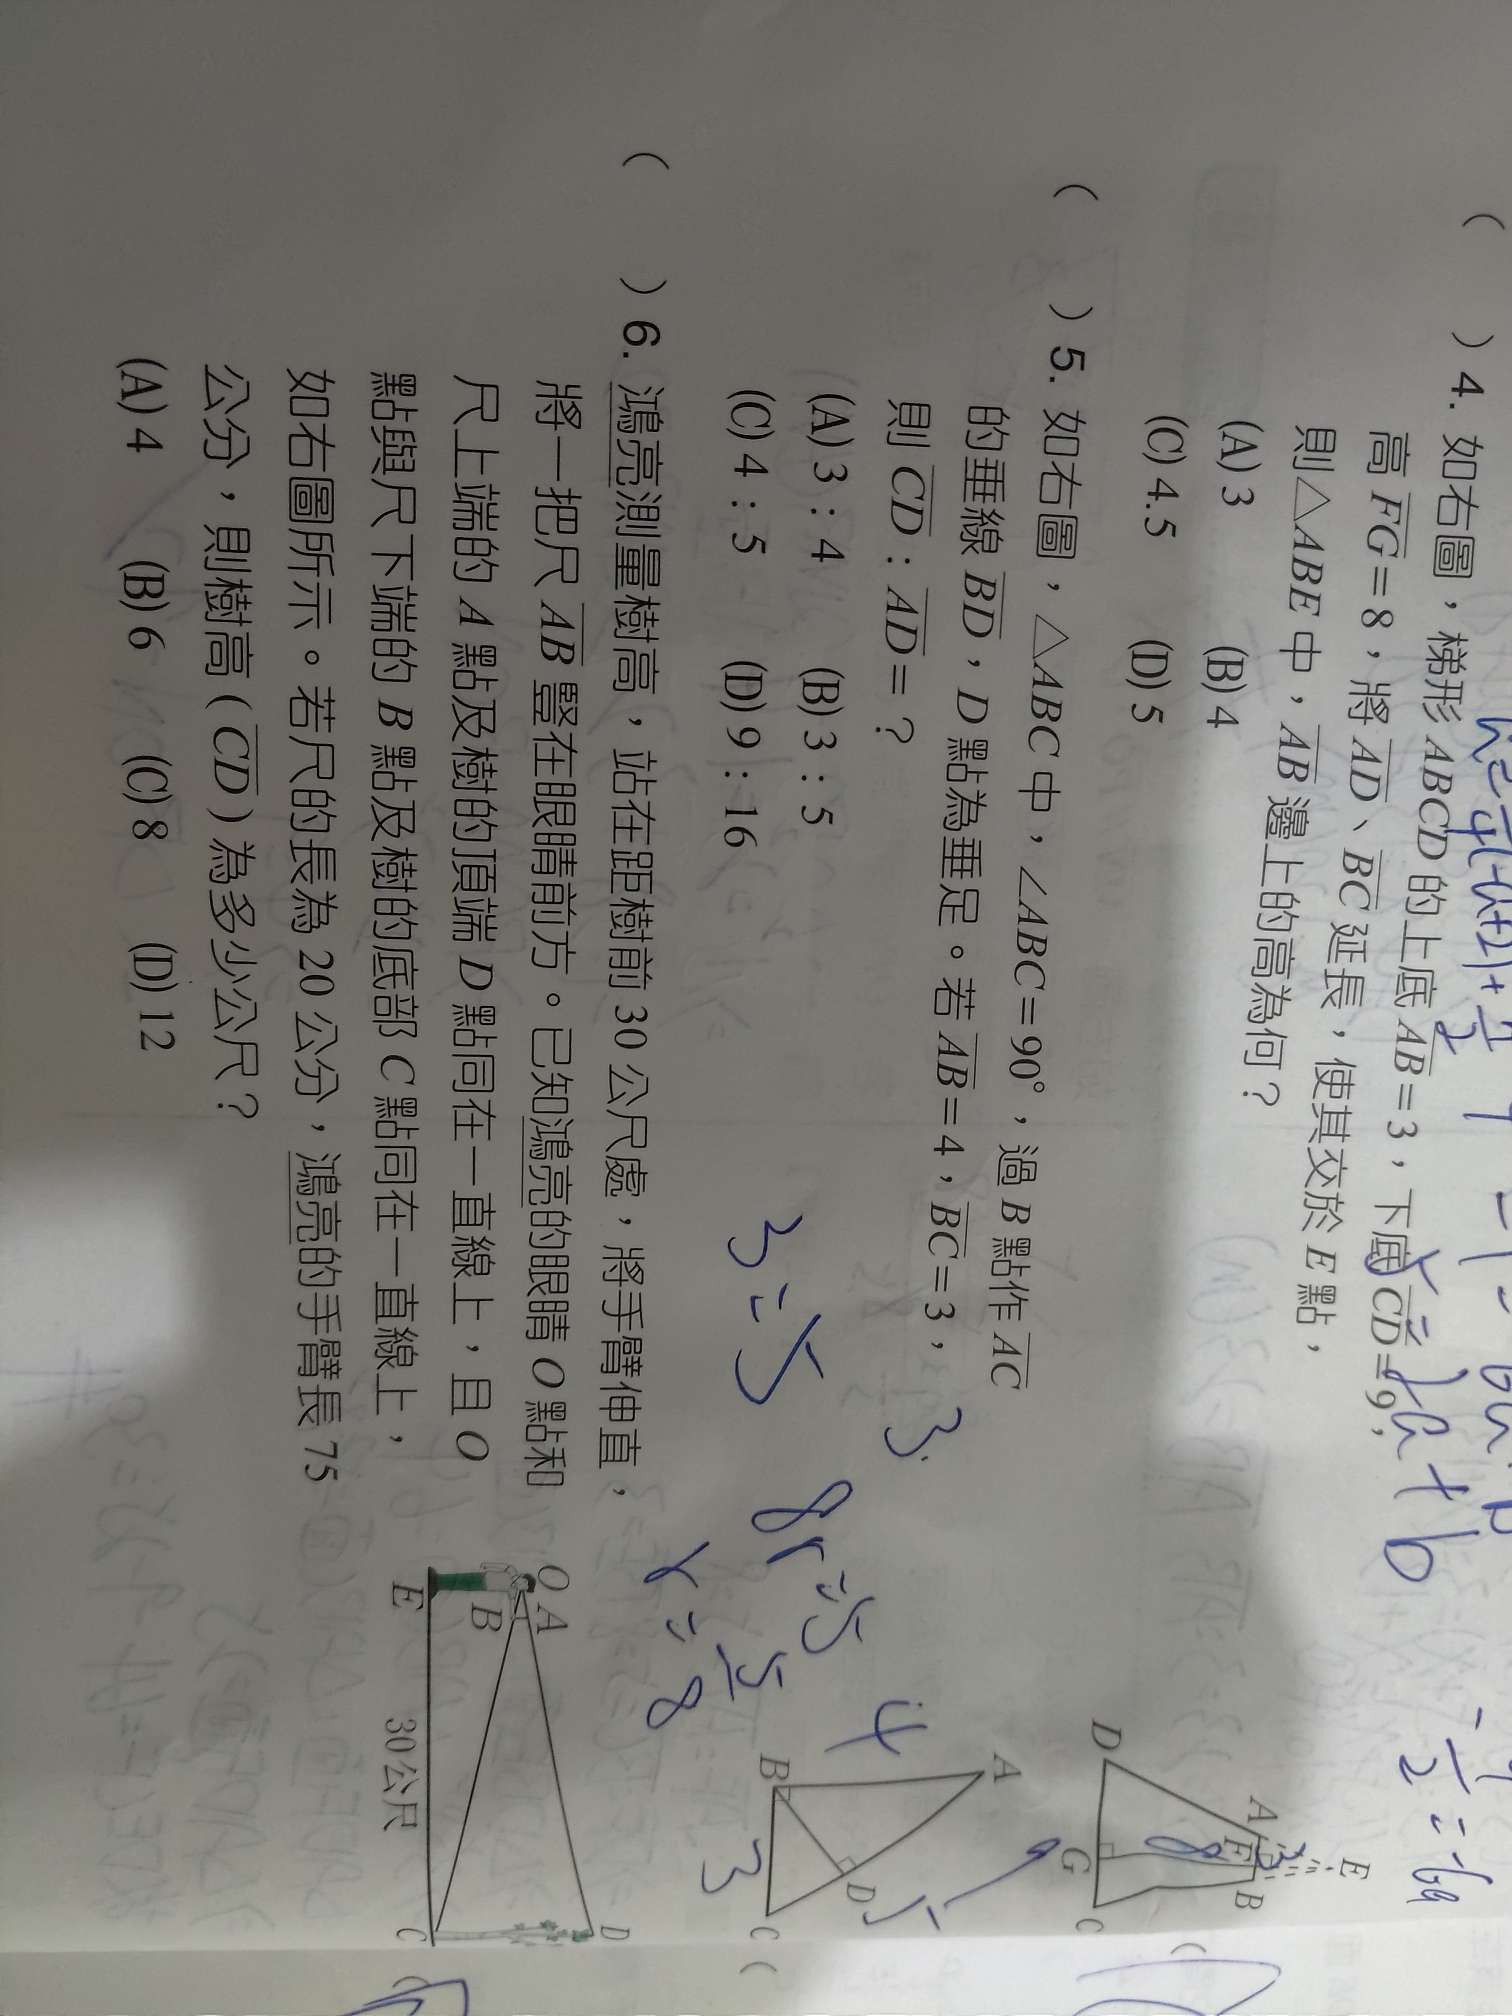 ( ) 4. 如右圖，梯形 ABCD 的上底 AB=3，下底 CD=9，
高 FG=8，將 AD、BC 延長，使其交於 E 點，
則△ABE 中，AB 邊上的高為何？
(A) 3 (B) 4
(C) 4.5 (D) 5
E
A F B
3
8
D G C
( ) 5. 如右圖，△ABC 中，∠ABC=90°，過 B 點作 AC
的垂線 BD，D 點為垂足。若 AB=4，BC=3，
則 CD：AD=？
(A) 3：4 (B) 3：5
(C) 4：5 (D) 9：16
A
4
D
5
B C
3
3:5
( ) 6. 鴻亮測量樹高，站在距樹前 30 公尺處，將手臂伸直，
將一把尺 AB 豎在眼睛前方。已知鴻亮的眼睛 O 點和
尺上端的 A 點及樹的頂端 D 點同在一直線上，且 O
點與尺下端的 B 點及樹的底部 C 點同在一直線上，
如右圖所示。若尺的長為 20 公分，鴻亮的手臂長 75
公分，則樹高 ( CD ) 為多少公尺？
(A) 4 (B) 6 (C) 8 (D) 12
O A D
B
E 30公尺 C